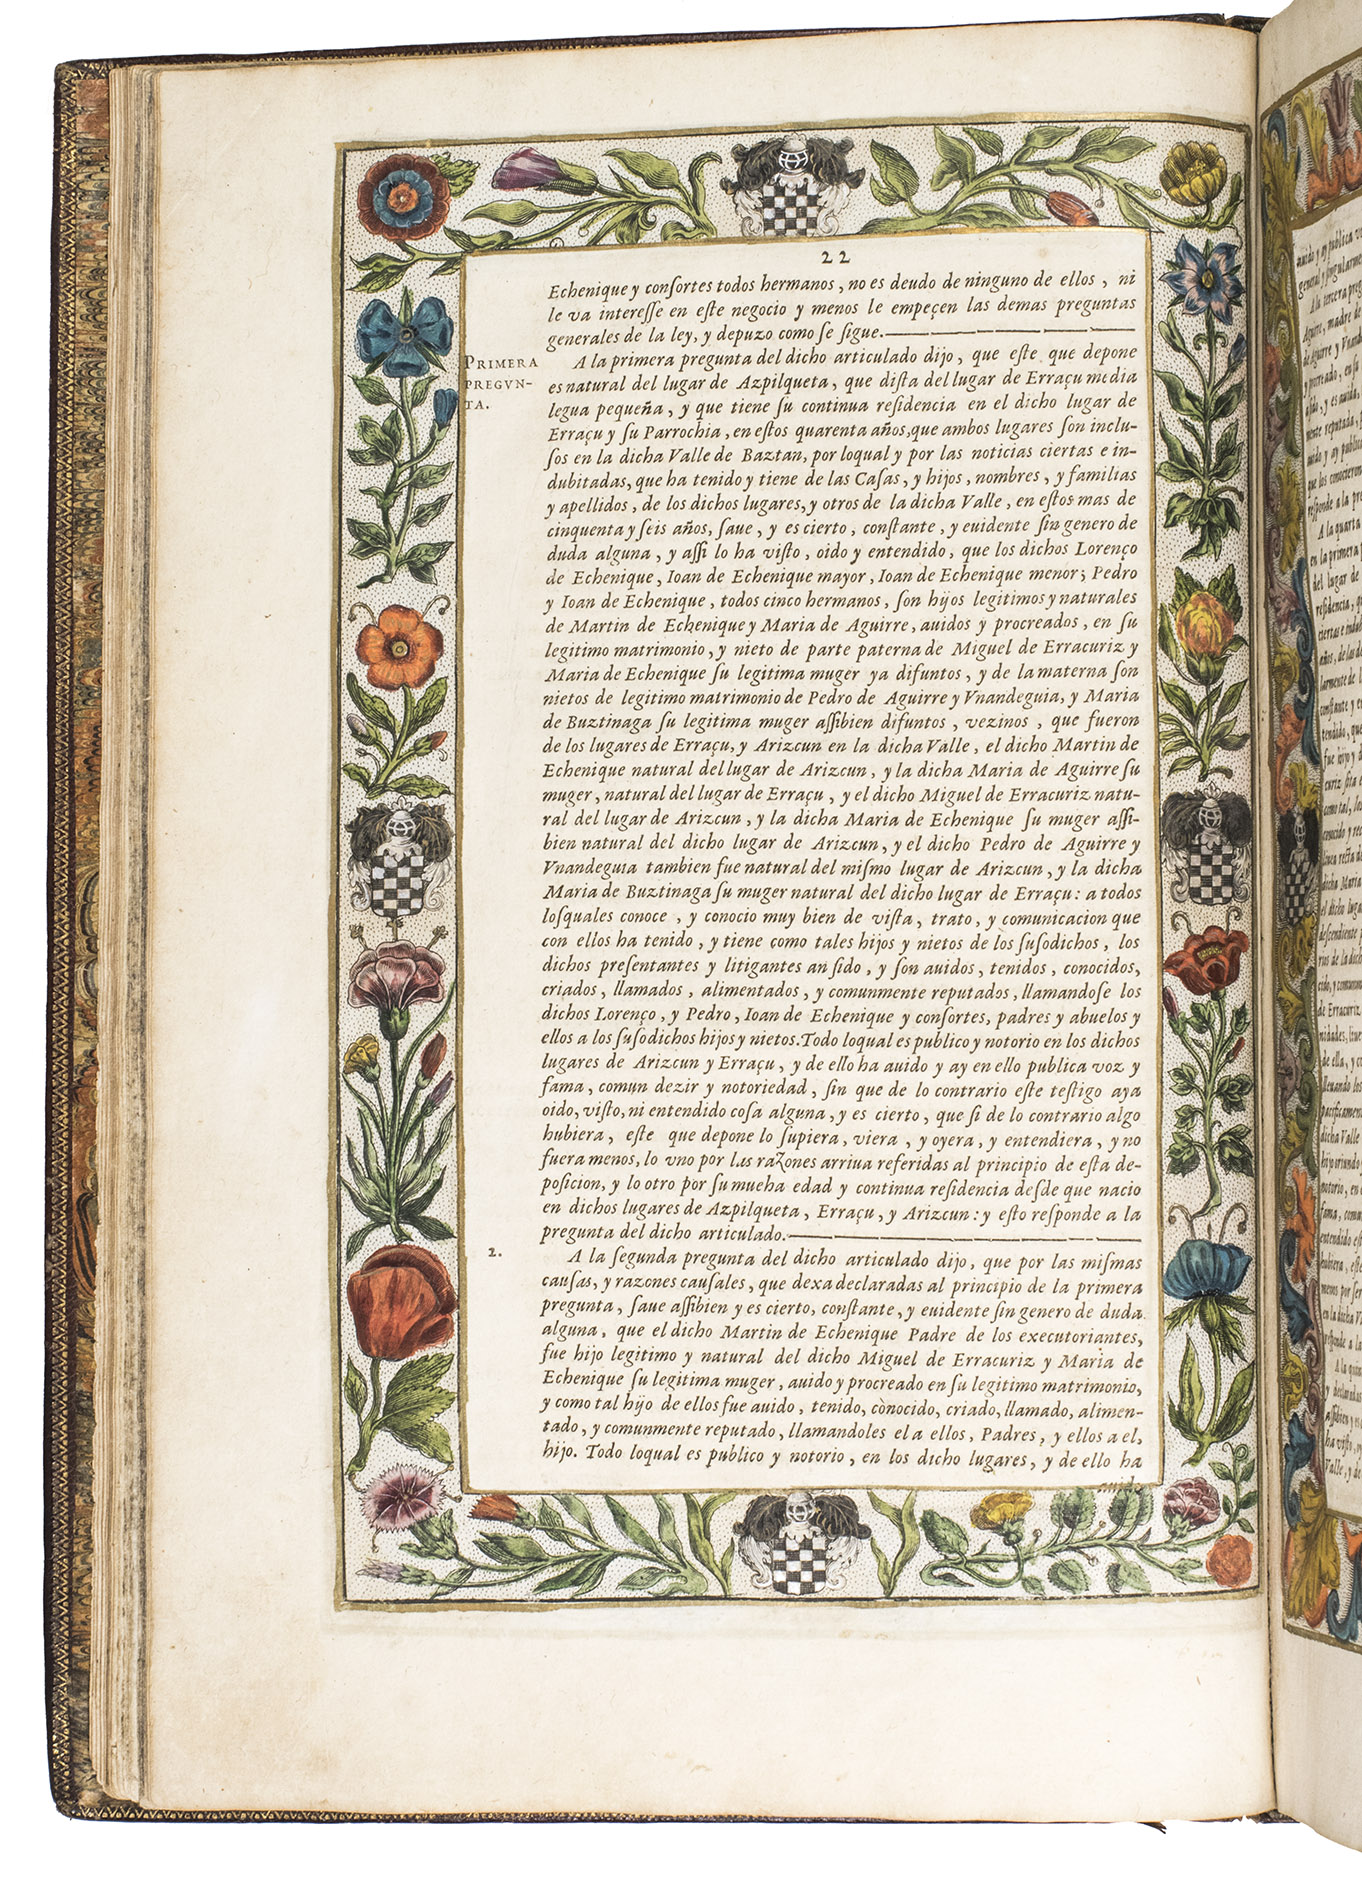 22
Echenique y conſortes todos hermanos, no es deudo de ninguno de ellos, ni
le va intereſſe en eſte negocio y menos le empeçen las demas preguntas
generales de la ley, y depuzo como ſe ſigue.
PRIMERA
PREGVN-
TA.
A la primera pregunta del dicho articulado dijo, que eſte que depone
es natural del lugar de Azpilqueta, que diſta del lugar de Erraçu media
legua pequeña, y que tiene ſu continua reſidencia en el dicho lugar de
Erraçu y ſu Parrochia, en eſtos quarenta años, que ambos lugares ſon inclu-
ſos en la dicha Valle de Baztan, por loqual y por las noticias ciertas e in-
dubitadas, que ha tenido y tiene de las Caſas, y hijos, nombres, y familias
y apellidos, de los dichos lugares, y otros de la dicha Valle, en eſtos mas de
cinquenta y ſeis años, ſaue, y es cierto, conſtante, y euidente ſin genero de
duda alguna, y aſſi lo ha viſto, oido y entendido, que los dichos Lorenço
de Echenique, Ioan de Echenique mayor, Ioan de Echenique menor; Pedro
y Ioan de Echenique, todos cinco hermanos, ſon hijos legitimos y naturales
de Martin de Echenique y Maria de Aguirre, auidos y procreados, en ſu
legitimo matrimonio, y nieto de parte paterna de Miguel de Erracuriz y
Maria de Echenique ſu legitima muger ya difuntos, y de la materna ſon
nietos de legitimo matrimonio de Pedro de Aguirre y Vnandeguia, y Maria
de Buztinaga ſu legitima muger aſſibien difuntos, vezinos, que fueron
de los lugares de Erraçu, y Arizcun en la dicha Valle, el dicho Martin de
Echenique natural del lugar de Arizcun, y la dicha Maria de Aguirre ſu
muger, natural del lugar de Erraçu, y el dicho Miguel de Erracuriz natu-
ral del lugar de Arizcun, y la dicha Maria de Echenique ſu muger aſſi-
bien natural del dicho lugar de Arizcun, y el dicho Pedro de Aguirre y
Vnandeguia tambien fue natural del miſmo lugar de Arizcun, y la dicha
Maria de Buztinaga ſu muger natural del dicho lugar de Erraçu: a todos
loſquales conoce, y conocio muy bien de viſta, trato, y comunicacion que
con ellos ha tenido, y tiene como tales hijos y nietos de los ſuſodichos, los
dichos preſentantes y litigantes an ſido, y ſon auidos, tenidos, conocidos,
criados, llamados, alimentados, y comunmente reputados, llamandoſe los
dichos Lorenço, y Pedro, Ioan de Echenique y conſortes, padres y abuelos y
ellos a los ſuſodichos hijos y nietos. Todo loqual es publico y notorio en los dichos
lugares de Arizcun y Erraçu, y de ello ha auido y ay en ello publica voz y
fama, comun dezir y notoriedad, ſin que de lo contrario eſte teſtigo aya
oido, viſto, ni entendido coſa alguna, y es cierto, que ſi de lo contrario algo
hubiera, eſte que depone lo ſupiera, viera, y oyera, y entendiera, y no
fuera menos, lo vno por las razones arriua referidas al principio de eſta de-
poſicion, y lo otro por ſu mueha edad y continua reſidencia deſde que nacio
en dichos lugares de Azpilqueta, Erraçu, y Arizcun: y eſto reſponde a la
pregunta del dicho articulado.
2.
A la ſegunda pregunta del dicho articulado dijo, que por las miſmas
cauſas, y razones cauſales, que dexa declaradas al principio de la primera
pregunta, ſaue aſſibien y es cierto, conſtante, y euidente ſin genero de duda
alguna, que el dicho Martin de Echenique Padre de los executoriantes,
fue hijo legitimo y natural del dicho Miguel de Erracuriz y Maria de
Echenique ſu legitima muger, auido y procreado en ſu legitimo matrimonio,
y como tal hijo de ellos fue auido, tenido, cònocido, criado, llamado, alimen-
tado, y comunmente reputado, llamandoles el a ellos, Padres, y ellos a el,
hijo. Todo loqual es publico y notorio, en los dicho lugares, y de ello ha
auido